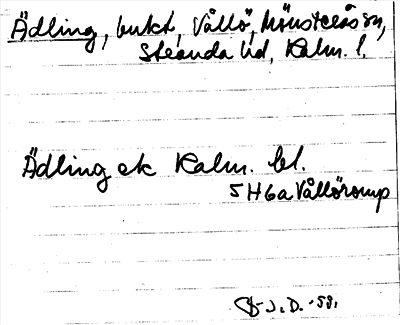 Ädling, bukt, Vållö, Mönsterås sn,
Stranda hd, Kalm. l.
Ädling ek Kalm. bl.
5H6a Vållöromp
J.D. -58.